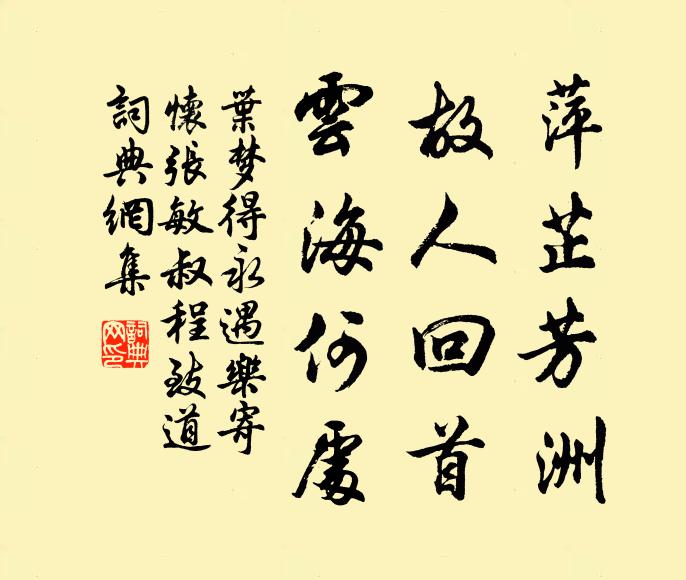 萍芷芳洲
故人回首
雲海何處
葉梦得永遇樂寄
懷張敏叔程致道
詞典網集
詞典網印